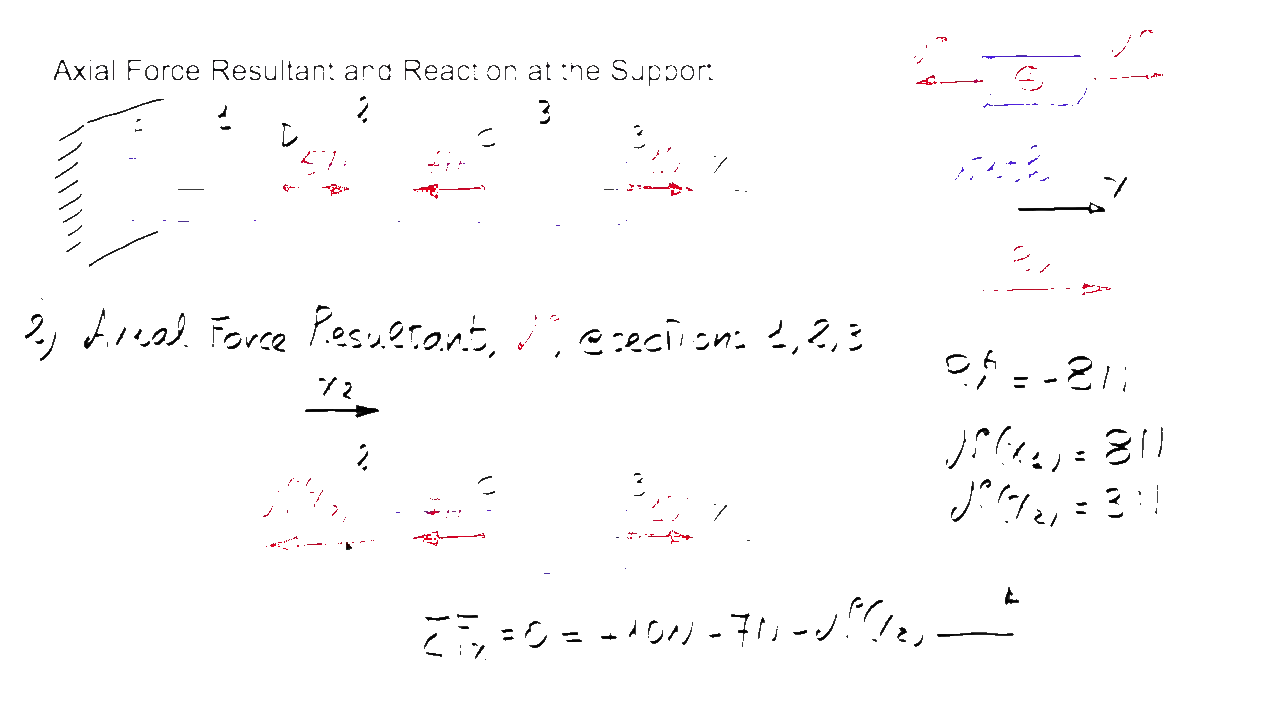 Axial Force Resultant and Reaction at the Support
1 2 3
D C B
5N 7N 10N x
x
2) Axial Force Resultant, N, @ sections 1, 2, 3
x2
2
C B
N(x2) 7N 10N x
= -8N
N(x1) = 8N
N(x2) = 3N
ΣFx = 0 = +10N - 7N - N(x2)